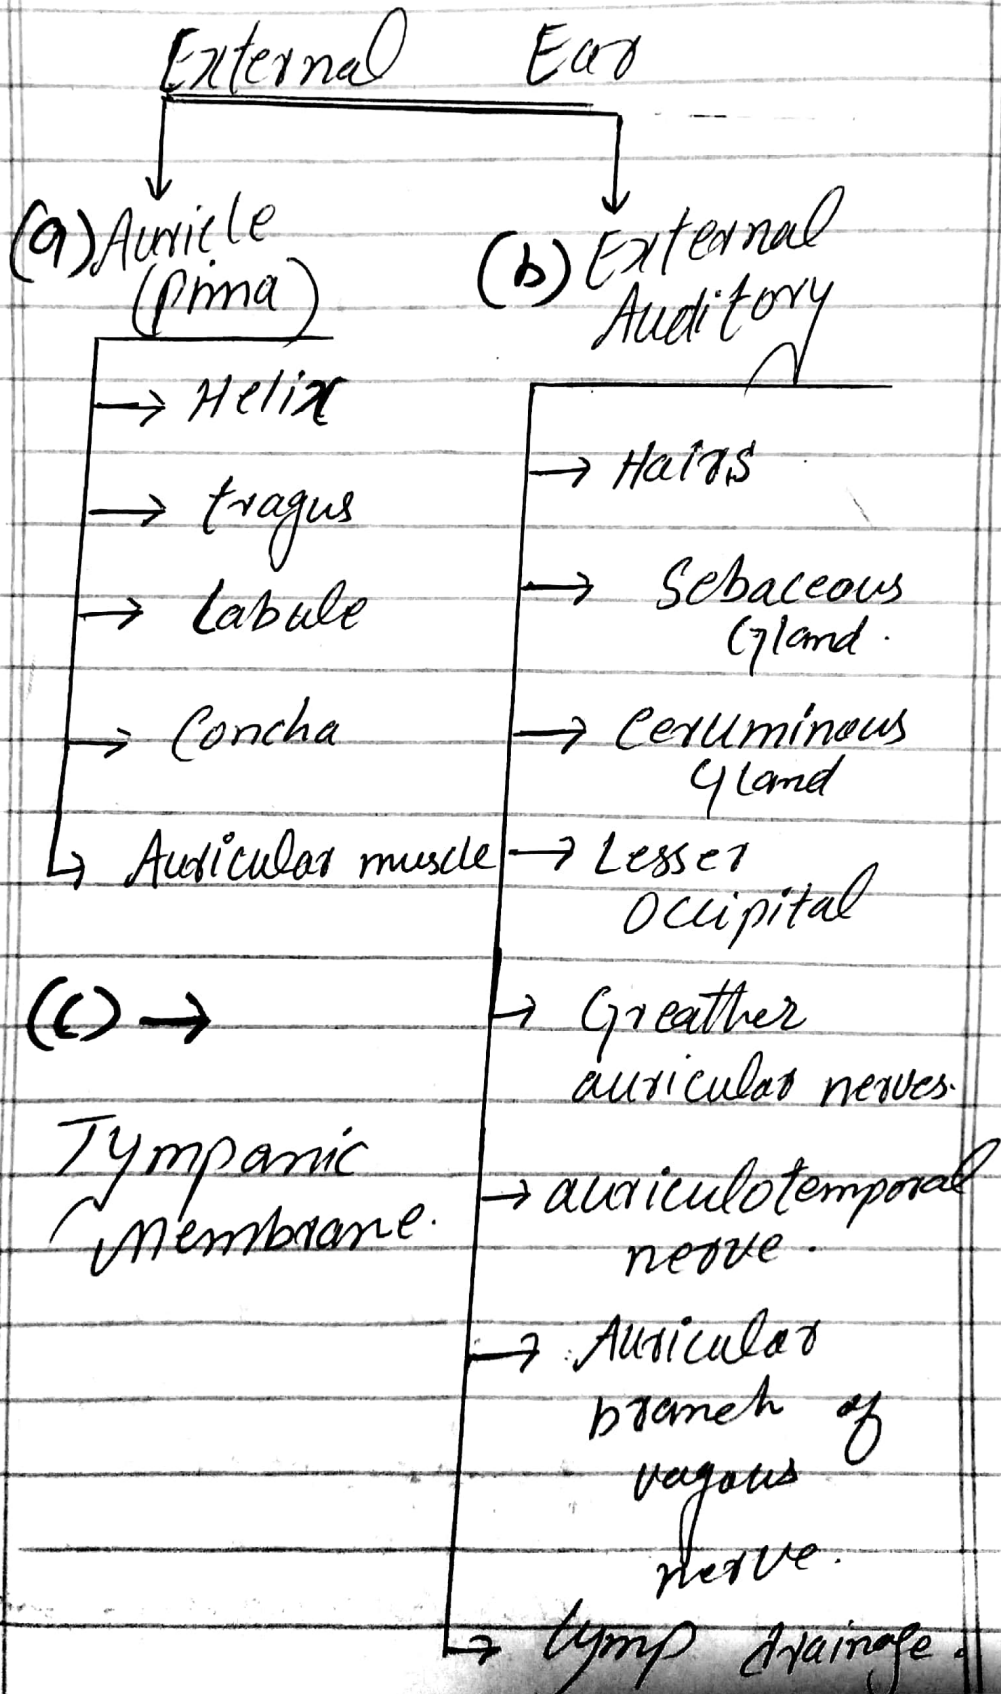 External Ear
(a) Auricle
(pinna)
→ Helix
→ tragus
→ Labule
→ Concha
↳ Auricular muscle
(b) External
Auditory
→ Hairs
→ Sebaceous
Gland.
→ Ceruminous
Gland
→ Lesser
Occipital
→ Greather
auricular nerves.
→ auriculotemporal
nerve.
→ Auricular
branch of
vagous
nerve.
↳ lymp drainage.
(c) →
Tympanic
Membrane.